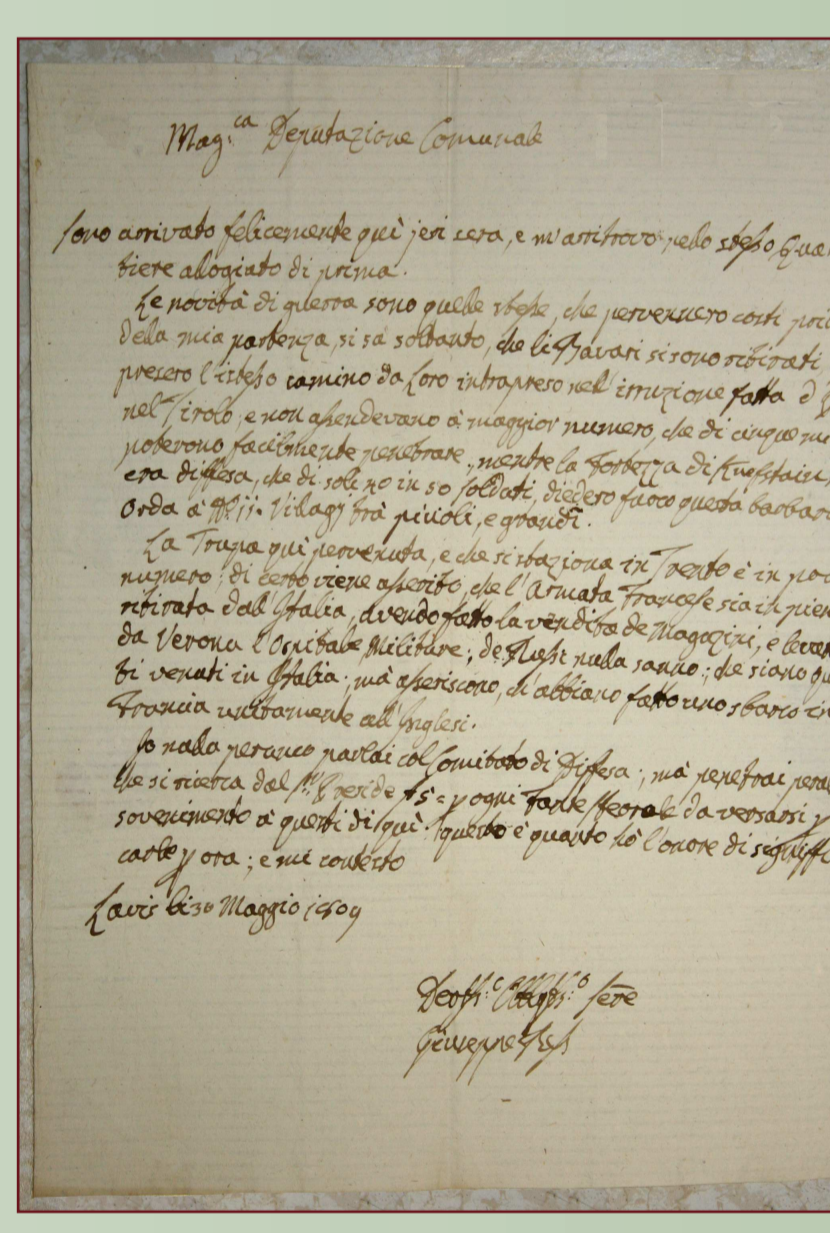 Mag:ca Deputazione Comunale
Sono arrivato felicemente quì jeri sera, e m'arritrovo nello stesso Quar
tiere alogiato di prima.
Le novità di guerra sono quelle stesse, che pervennero costì pri
della mia partenza, si sà soltanto, che li Bavari si sono ritirati,
presero l'istesso camino da Loro intrapreso nell'irruzione fatta
nel Tirolo, e non assendevano à maggior numero, che di cinque mi
poterono facilmente penetrare, mentre la Fortezza di Kuefstain,
era diffesa, che di soli 40 in 50 soldati, diedero fuoco questa barbar
Orda à Vilagj trà piccoli, e grandi.
La Trupa quì pervenuta, e che si staziona in Trento è in poc
numero; di certo viene asserito, che l'Armata Francese sia in pien
ritirata dall'Italia, avendo fatto la vendita de Magazini, e levat
da Verona l'Ospitale Militare; de Russi nulla sanno; che siano qu
ti venuti in Italia; mà asseriscono, ch'abbiano fatto uno sbarco in
Francia unitamente all'Inglesi.
Jo nulla peranco parlai col Comitato di Diffesa; mà penetrai pera
che si ricerca dal Preside f 5 = p ogni Fante da versarsi p
sovenimento à questi di quì. questo è quanto hò l'onore di signiffi
carle p ora; e mi contesto
Lavis li 30 Maggio 1809
Servre
Giuseppe